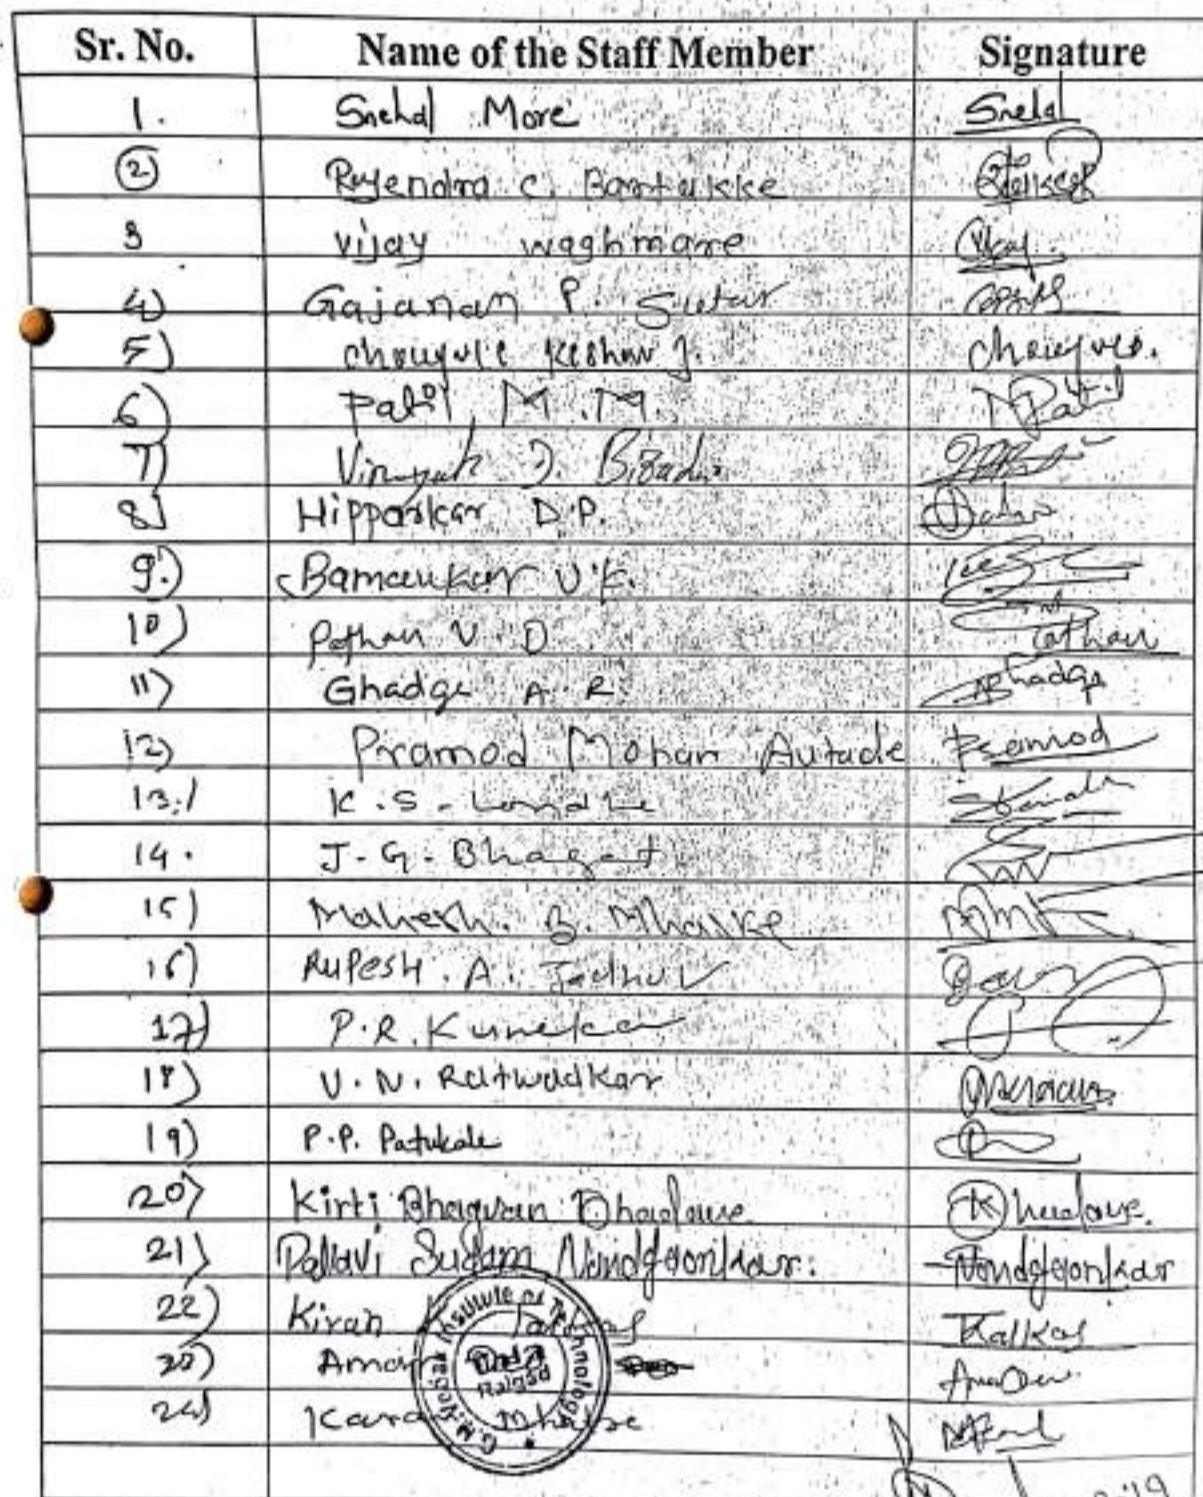 Sr. No. Name of the Staff Member Signature
1. Snehal More Snehal
2 Rajendra C. Bantukke
3 Vijay waghmare Vijay
4) Gajanan P. Sutar
5) Chougule Keshav J. Chougule.
6) Patil M.M. MPatil
7) Vinayak D. Biradar
8) Hipparkar D.P.
9.) Bamaukar V.K.
10) Pathan V. D Pathan
11) Ghadge A. R. Ghadge
12) Pramod Mohan Autade Pramod
13.) K.S. Londhe
14. J.G. Bhagat
15) Mahesh. B. Mhaske
16) Rupesh. A. Jadhav
17) P.R. Kunekar
18) V. N. Ratwadkar
19) P.P. Patukale
20) Kirti Bhagvan Dhadave Khadave.
21) Pallavi Sudam Nandgaonkar. Nandgaonkar
22) Kiran Kalkal
23) Amar
24) Karan Mhaske
G.M. Vedak Institute of Technology
Tala
Raigad